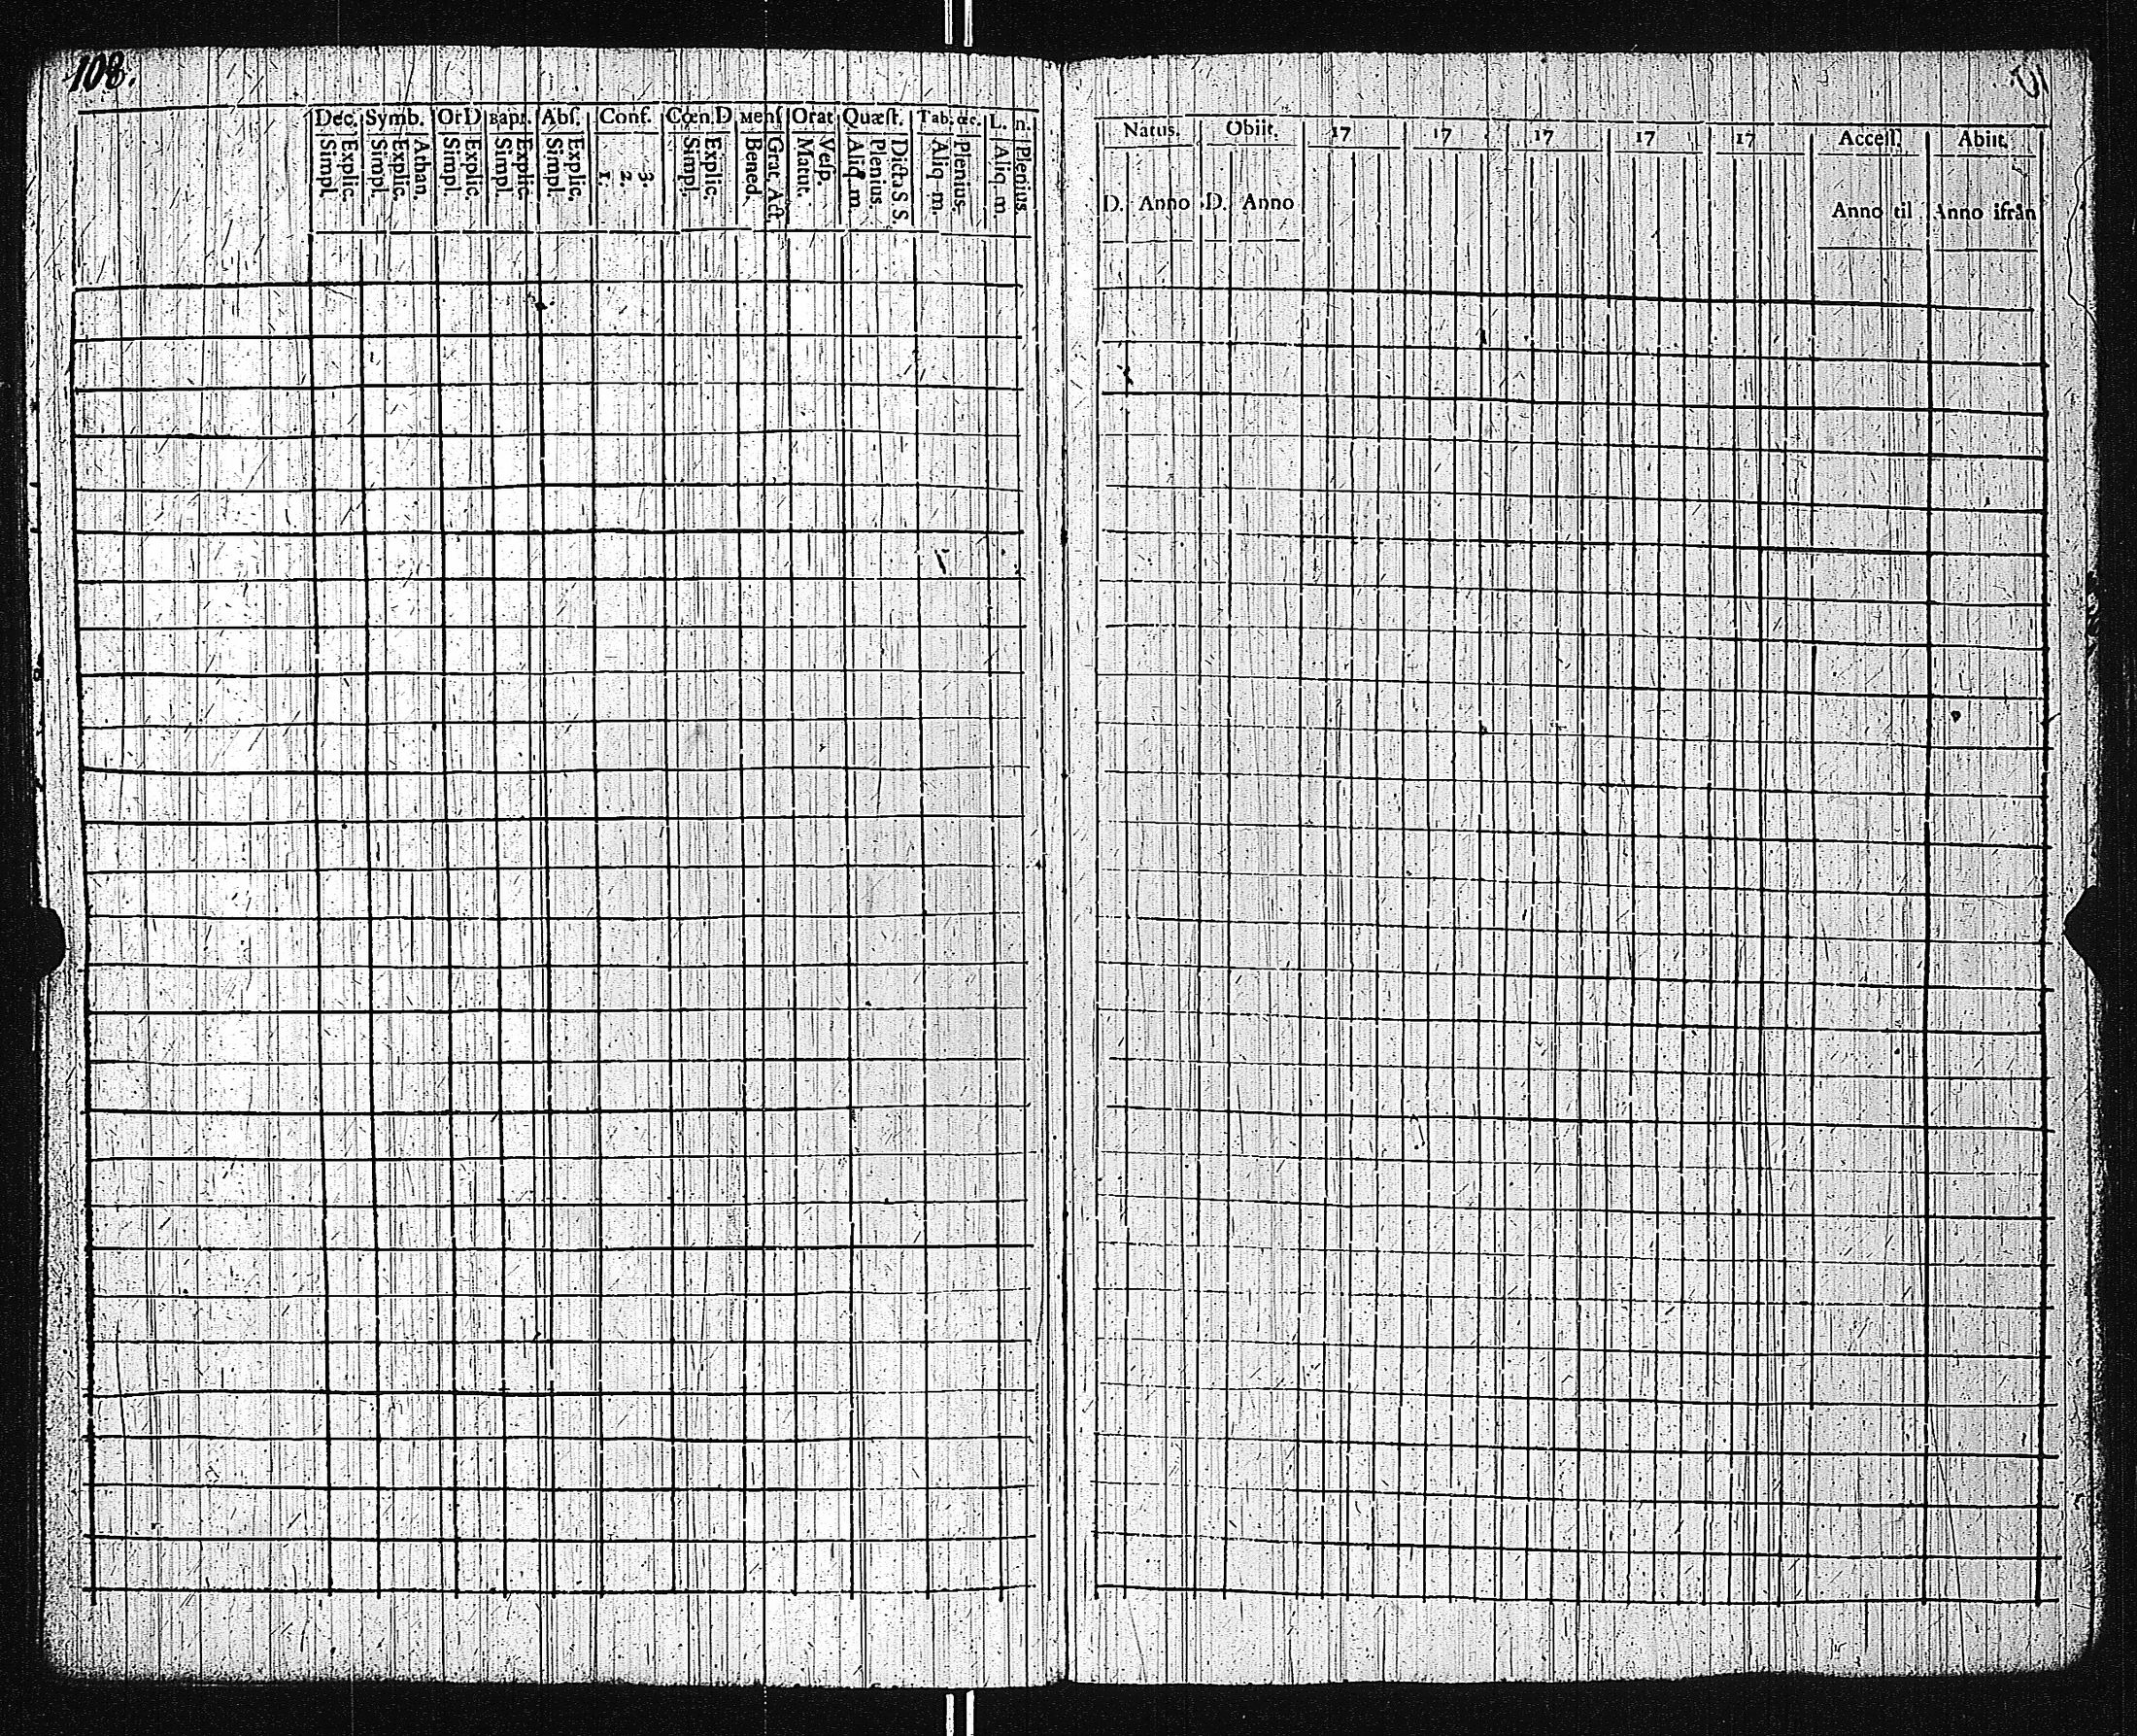 108.
Dec. Symb. Or D Bapt. Abſ. Conf. Cœn. D Menſ Orat Quæſt. Tab. œc. L. n.
Simpl. Explic. Simpl. Explic. Athan. Simpl. Explic. Simpl. Explic. Simpl. Explic. 1. 2. 3. Simpl. Explic. Bened. Grat. Act. Matut. Veſp. Aliq. m. Plenius Dicta S S. Aliq. m. Plenius. Aliq. m. Plenius.
Natus. Obiit. 17 17 17 17 17 Acceſſ. Abiit.
D. Anno D. Anno Anno til Anno ifrån